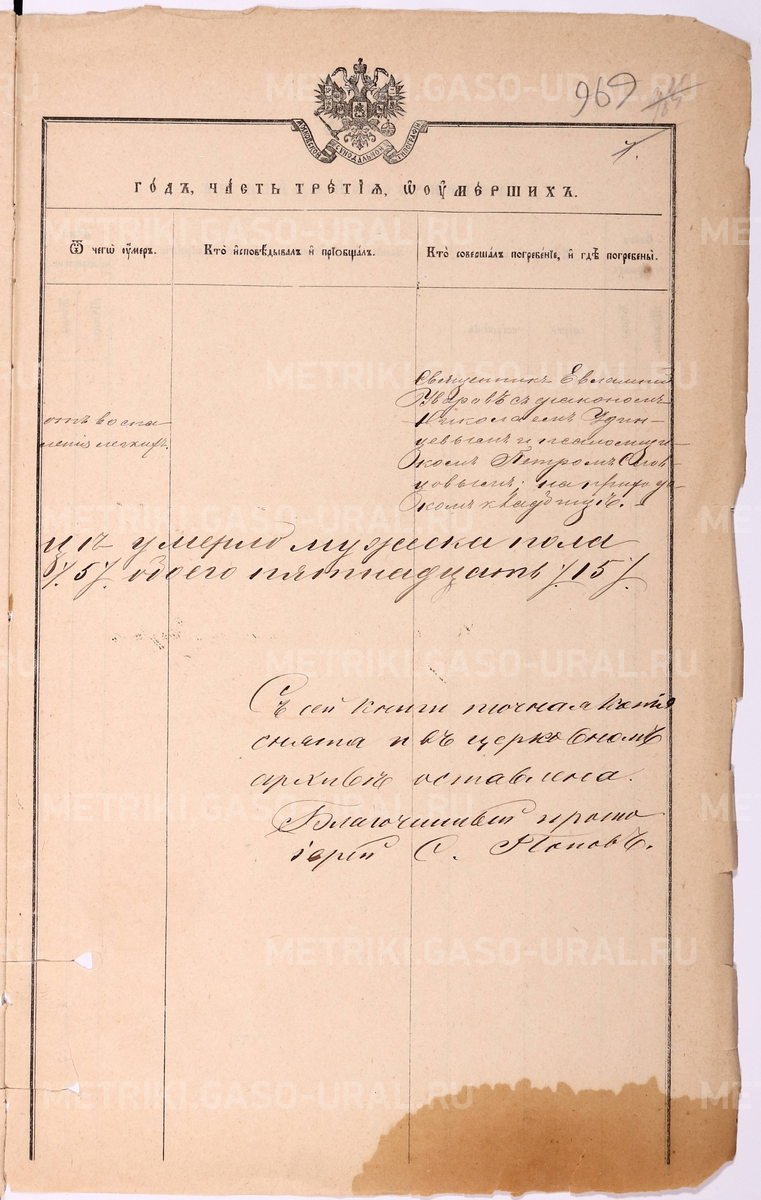 969
МОСКОВСКОЙ СѴНОДАЛЬНОЙ ТИПОГРАФІИ
1.
ГОДЪ, ЧАСТЬ ТРЕТІѦ, Ѡ ОУМЕРШИХЪ.
Ѿ чегѡ оумеръ.
Кто исповѣдывалъ и пріобщалъ.
Кто совершалъ погребеніе, и гдѣ погребены.
отъ воспа-
ленія легкихъ.
Священникъ Евлампій
Уваровъ съ діакономъ
Николаемъ Удин-
цевымъ и псаломщи-
комъ Петромъ Слов
цовымъ; на приход-
комъ кладбищѣ.
цѣ умерло мужеска пола
/.5/. обоего пятнадцать /.15/.
Съ сей книги точная копія
снята и въ церковномъ
архивѣ оставлена.
Благочинный прото
іерей С. Поповъ.
METRIKI.GASO-URAL.RU